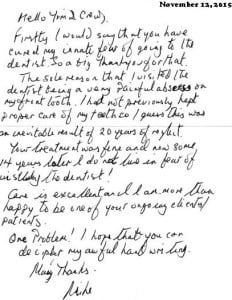 November 12, 2015
Hello Ynm & Crew,
Firstly I would say that you have
cured my innate fear of going to the
dentist so a big thankyou for that.
The sole reason that I visited the
dentist being a very painful abscess on
my front tooth. I had not previously kept
proper care of my teeth so I guess this was
an inevitable result of 20 years of neglect.
Your treatment was fine and now some
14 years later I do not live in fear of
visiting the dentist!
Care is excellent and I am more than
happy to be one of your ongoing clients/
patients.
One Problem! I hope that you can
decipher my awful hand writing.
Many Thanks.
Mike